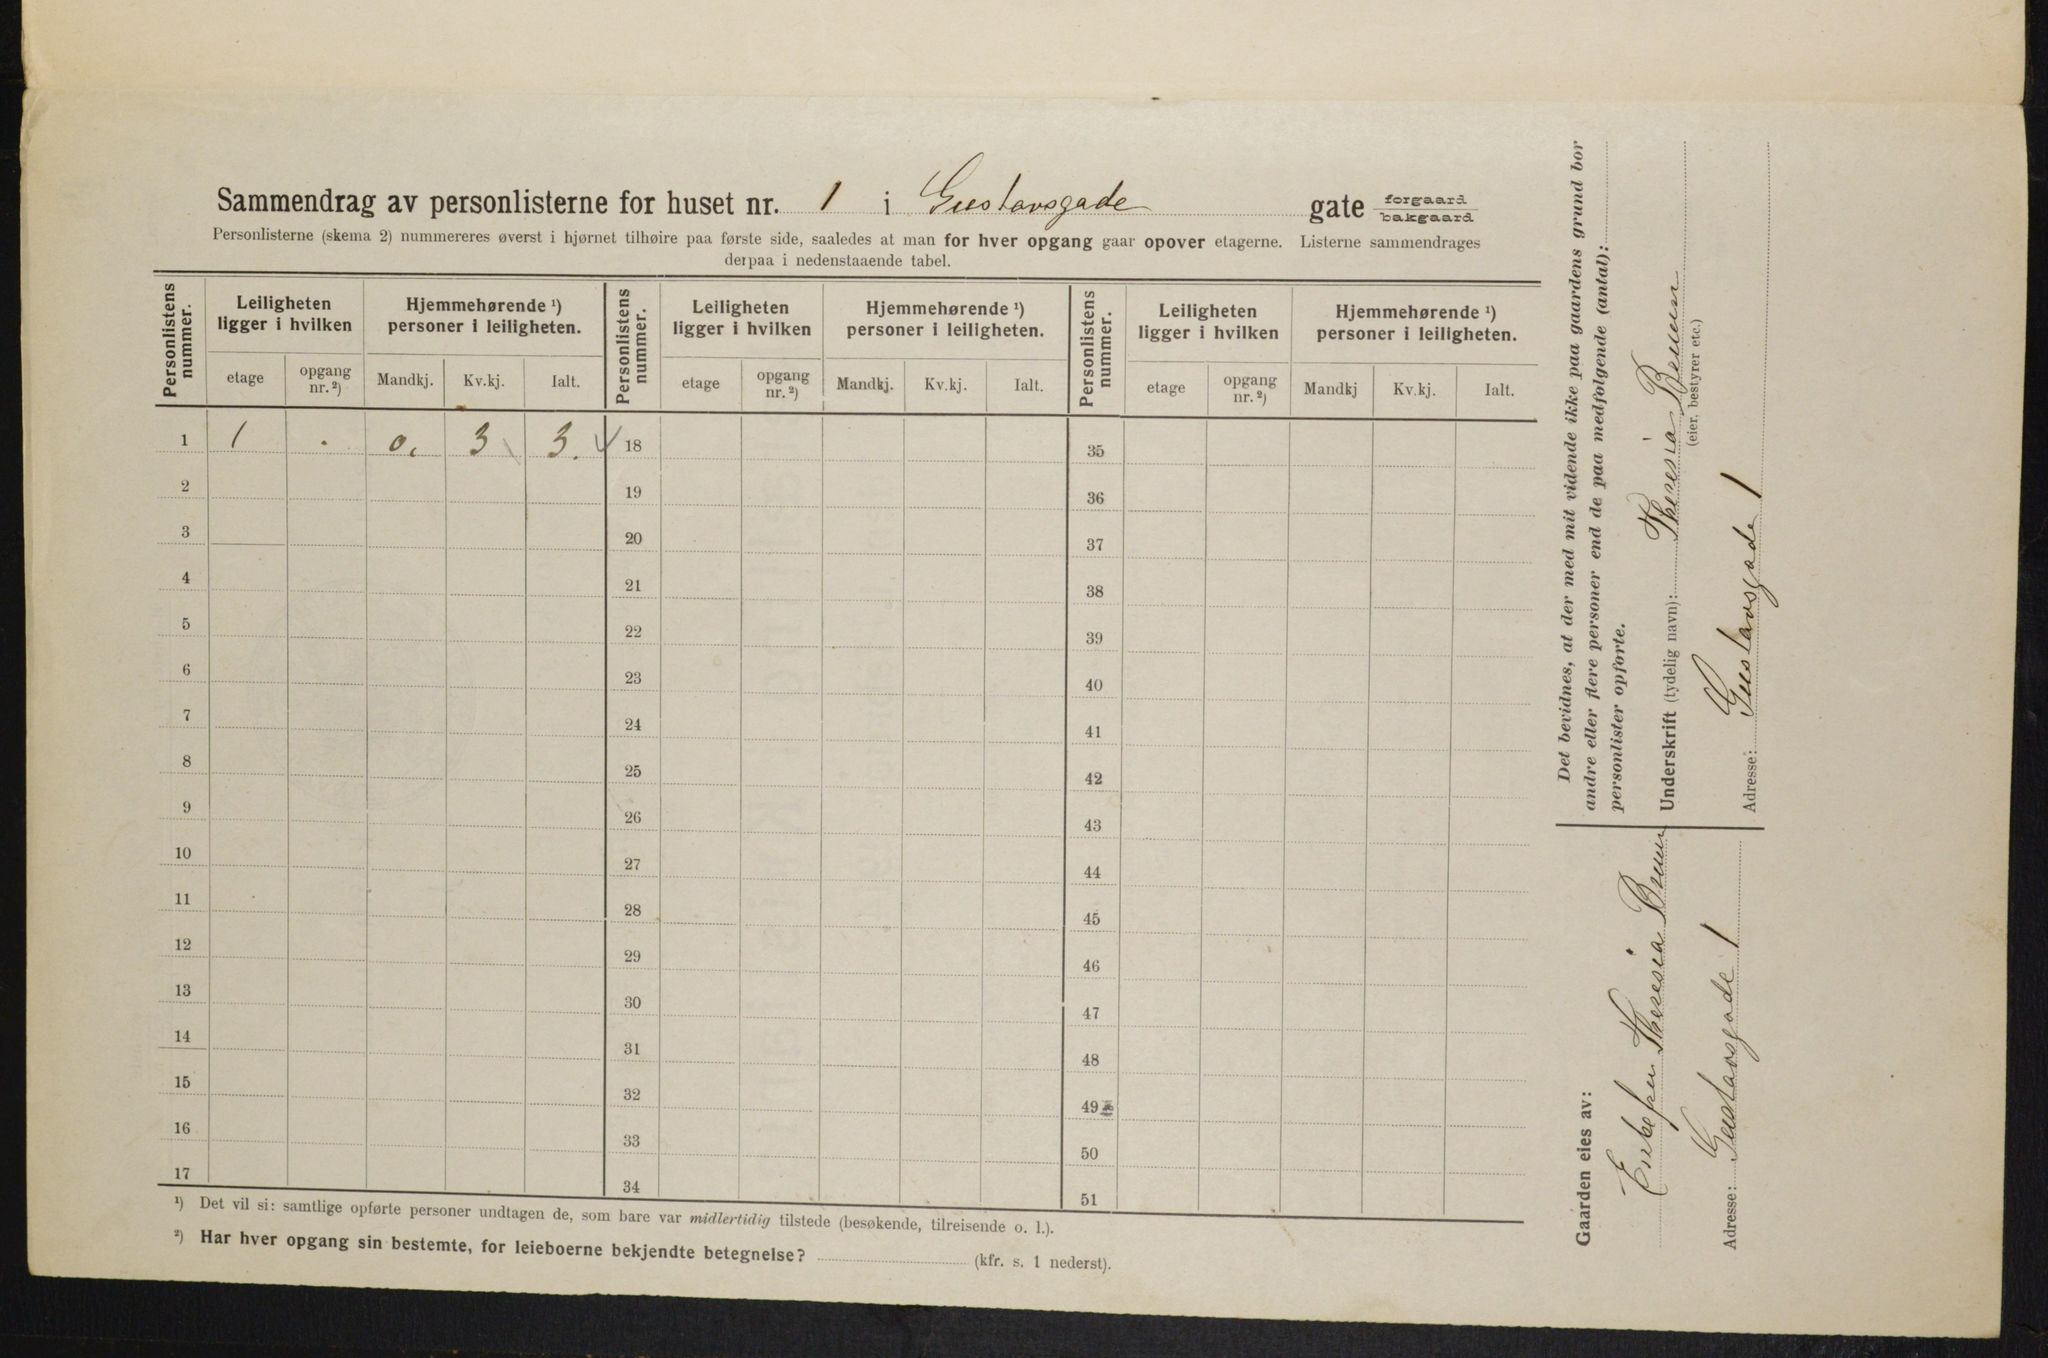 Sammendrag av personlisterne for huset nr. 1 i Gustavsgade gate forgaard bakgaard
Personlisterne (skema 2) nummereres øverst i hjørnet tilhøire paa første side, saaledes at man for hver opgang gaar opover etagerne. Listerne sammendrages
derpaa i nedenstaaende tabel.
Personlistens nummer. Leiligheten ligger i hvilken Hjemmehørende ¹) personer i leiligheten. Personlistens nummer. Leiligheten ligger i hvilken Hjemmehørende ¹) personer i leiligheten. Personlistens nummer. Leiligheten ligger i hvilken Hjemmehørende ¹) personer i leiligheten.
etage opgang nr. ²) Mandkj. Kv.kj. Ialt. etage opgang nr. ²) Mandkj. Kv.kj. Ialt. etage opgang nr. ²) Mandkj Kv.kj. Ialt.
1 1 . 0. 3 3. 18 35
2 19 36
3 20 37
4 21 38
5 22 39
6 23 40
7 24 41
8 25 42
9 26 43
10 27 44
11 28 45
12 29 46
13 30 47
14 31 48
15 32 49
16 33 50
17 34 51
¹) Det vil si: samtlige opførte personer undtagen de, som bare var midlertidig tilstede (besøkende, tilreisende o. l.).
²) Har hver opgang sin bestemte, for leieboerne bekjendte betegnelse? (kfr. s. 1 nederst).
Det bevidnes, at der med mit vidende ikke paa gaardens grund bor
andre eller flere personer end de paa medfølgende (antal):
personlister opførte.
Underskrift (tydelig navn): Theresia Bruun
(eier, bestyrer etc.)
Gustavsgade 1
Adresse:
Gaarden eies av:
Enkefru Theresia Bruun
Gustavsgade 1
Adresse: